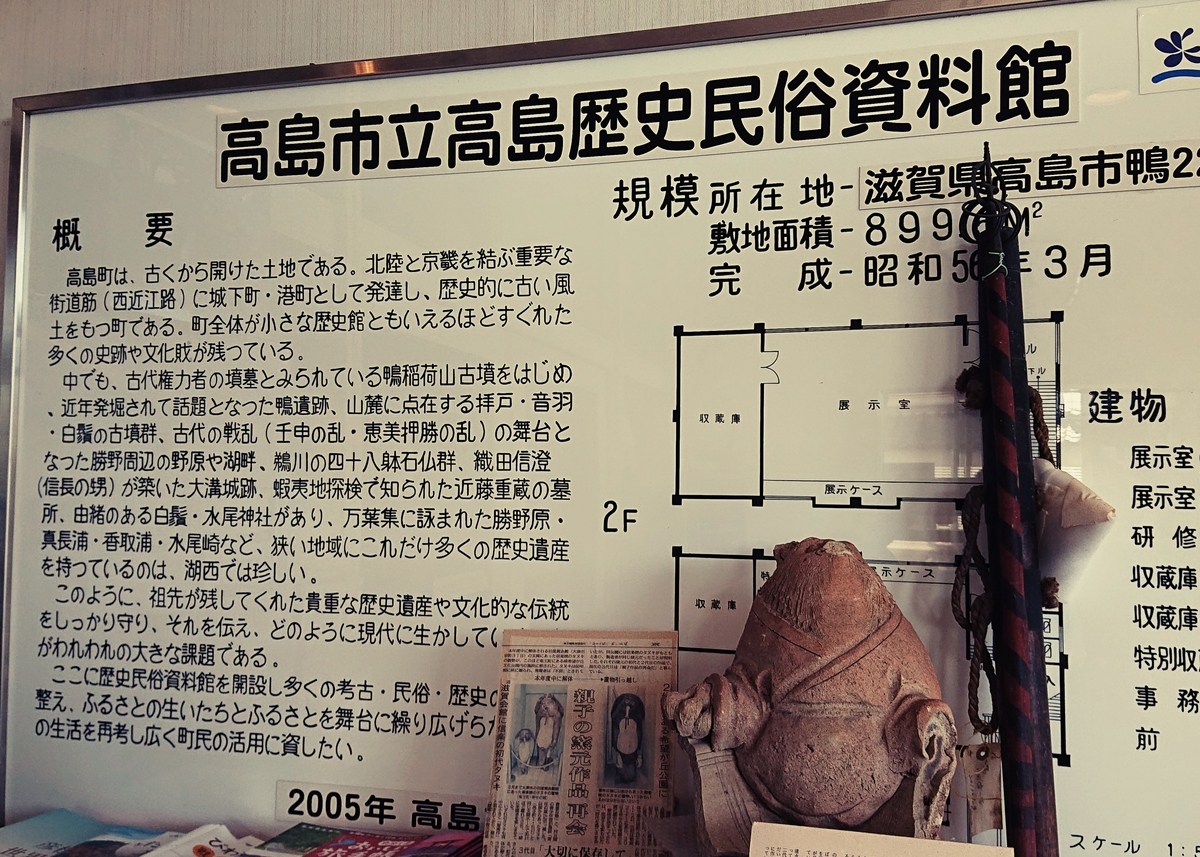 高島市立高島歴史民俗資料館
概 要
高島町は、古くから開けた土地である。北陸と京畿を結ぶ重要な
街道筋（西近江路）に城下町・港町として発達し、歴史的に古い風
土をもつ町である。町全体が小さな歴史館ともいえるほどすぐれた
多くの史跡や文化財が残つている。
中でも、古代権力者の墳墓とみられている鴨稲荷山古墳をはじめ
、近年発掘されて話題となった鴨遺跡、山麓に点在する拝戸・音羽
・白鬚の古墳群、古代の戦乱（壬申の乱・恵美押勝の乱）の舞台と
なった勝野周辺の野原や湖畔、鵜川の四十八躰石仏群、織田信澄
(信長の甥）が築いた大溝城跡、蝦夷地探検で知られた近藤重蔵の墓
所、由緒のある白鬚・水尾神社があり、万葉集に詠まれた勝野原・
真長浦・香取浦・水尾崎など、狭い地域にこれだけ多くの歴史遺産
を持つているのは、湖西では珍しい。
このように、祖先が残してくれた貴重な歴史遺産や文化的な伝統
をしっかり守り、それを伝え、どのように現代に生かして
がわれわれの大きな課題である。
ここに歴史民俗資料館を開設し多くの考古・民俗・歴史
整え、ふるさとの生いたちとふるさとを舞台に繰り広げら
の生活を再考し広く町民の活用に資したい。
2005年 高島
規模 所在地-滋賀県高島市鴨22
敷地面積-899 M²
完 成-昭和56年3月
収蔵庫
展示室
展示ケース
2F
収蔵庫
示ケース
建物
展示室
展示室
研 修
収蔵庫
収蔵庫
特別収
事 務
前
スケール 1:5
本年度中に解体
親子の窯元作品再会
3代目「大切に保存して